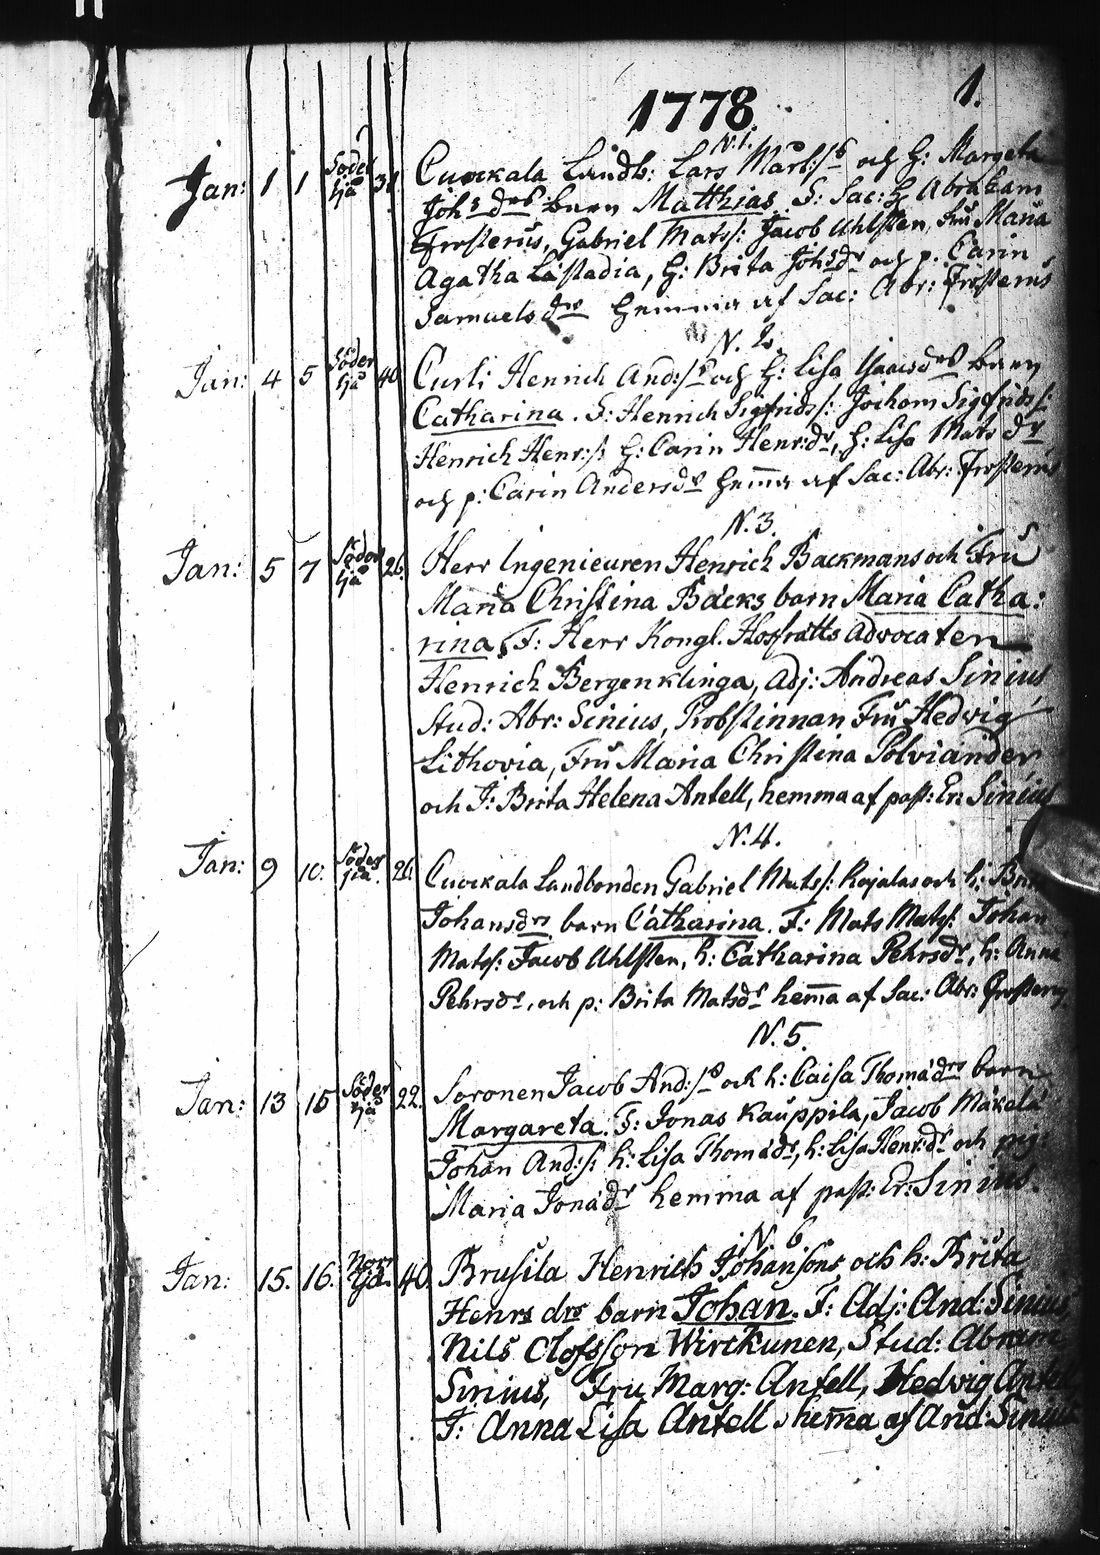 1778
1.
N. 1.
Jan: 1 1 Söder sjä Cuockala Landb: Lars Mårt:ss och H: Margeta
Johs drs barn Matthias. F: Sac: H Abraham
Frosterus, Gabriel Matss: Jacob Uhlsten, Fru Maria
Agatha Lästadia, H: Brita Johsdr och p. Carin
Samuels dr hemma af Sac: Abr: Frosterus
N. 2.
Jan: 4 5 Söder sjä 40 Curli Henrich And:ss och H: Lisa barn
Catharina. F: Henrich Sigfridss: Jochom Sigfridss:
Henrich Henr:s: H: Carin Henr:dr, H: Lisa Mats dr
och p: Carin Andersdr hem̄a af Sac: Abr: Frosterus
N. 3.
Jan: 5 7 Söder sjä 26. Herr Ingenieuren Henrich Backmans och Fru
Maria Christina Bäcks barn Maria Catha:
rina, F: Herr Kongl. Hofrätts Advocaten
Henrich Bergenklinga, Adj: Andreas Sinius
Stud: Abr: Sinius, Probstinnan Fru Hedvig
Lithovia, Fru Maria Christina Polviander
och J: Brita Helena Antell, hemma af past: Er: Sinius
N. 4.
Jan: 9 10. Söder sjä. 26. Cuockala Landbonden Gabriel Matss: Rajalas och h: Brita
Johansdrs barn Catharina. F: Mats Matss: Johan
Matss: Jacob Uhlsten, h: Catharina Pehrsdr, h: Anna
Pehrsdr, och p: Brita Matsdr hem̄a af Sac: Abr: Frosterus.
N. 5.
Jan: 13 15 Söder sjä 22. Soronen Jacob And:ss och h: Caisa Thomædrs barn
Margareta. F: Jonas Kauppila, Jacob Mäkelä
Johan And:s: h: Lisa Thomædr, h: Lisa Henr:dr och pig:
Maria Jonædr hemma af past: Er: Sinius.
N. 6
Jan: 15. 16. Norr sjä. 40. Brusila Henrich Johansons och h: Brita
Henrs drs barn Johan. F: Adj: And: Sinius,
Nils Olofsson Wirckunen, Stud: Abram
Sinius, Fru Marg: Antell, Hedvig Antell,
J: Anna Lisa Antell, hem̄a af And: Sinius